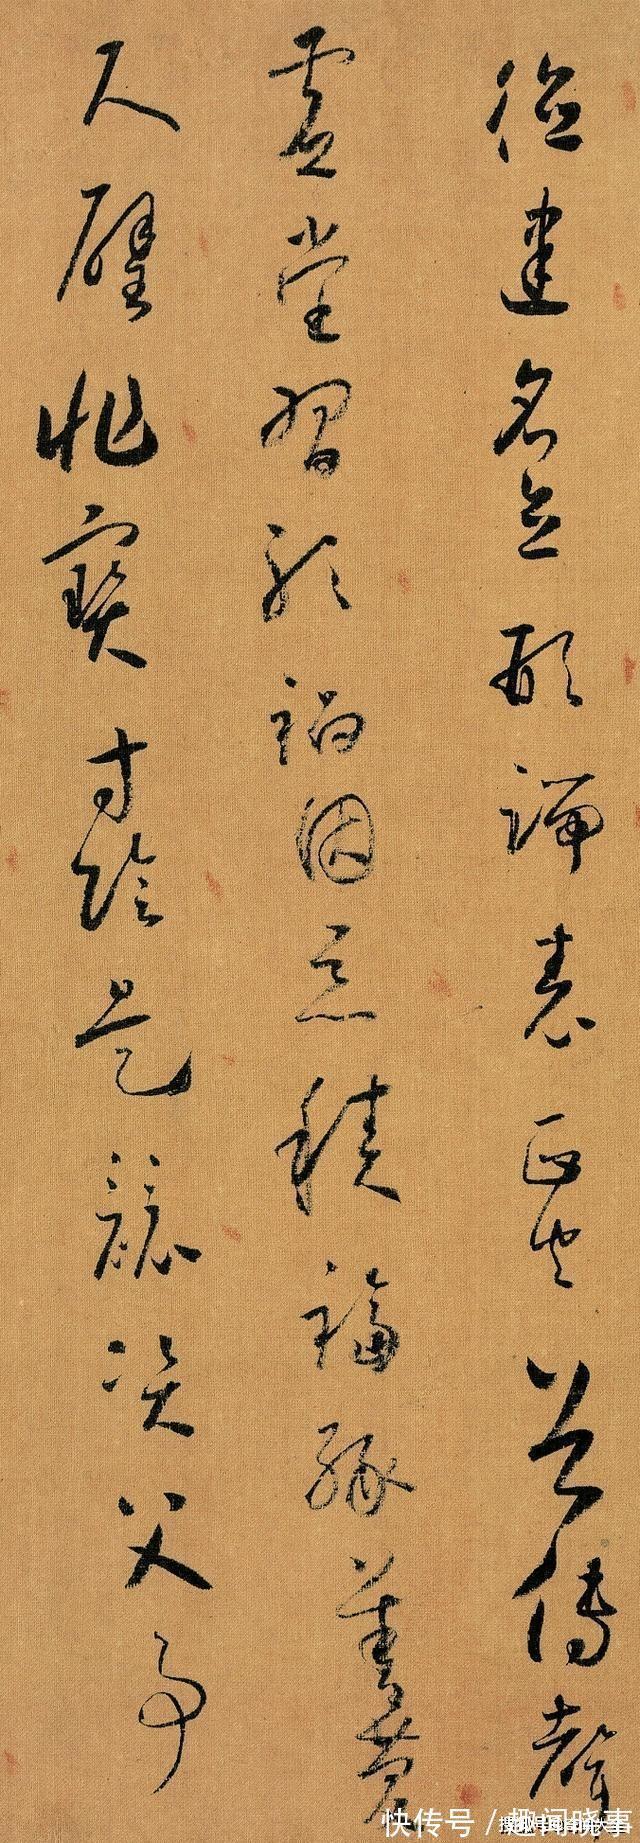 德建名立形端表正空谷傳聲
虛堂習聽禍因惡積福緣善慶
尺璧非寶寸陰是競資父事
快传号/趣闻晓事